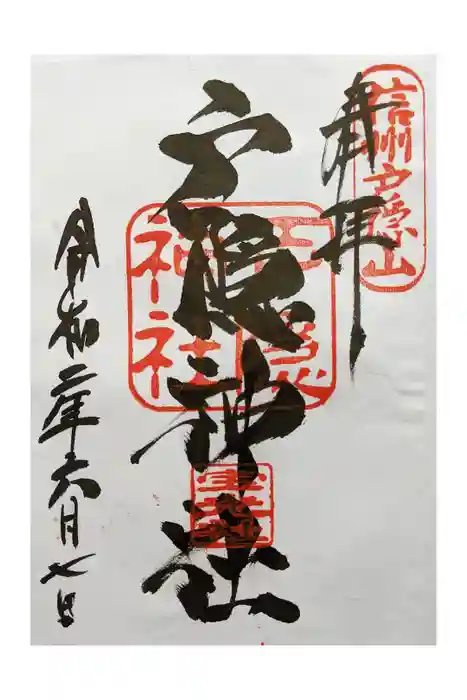 信州戸隠山
奉拝
戸隠神社
戸隠
神社
令和二年六月七日